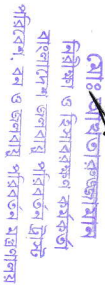 মোঃ
নিরীক্ষা ও হিসাবরক্ষণ কর্মকর্তা
বাংলাদেশ জলবায়ু পরিবর্তন ট্রাস্ট
পরিবেশ, বন ও জলবায়ু পরিবর্তন মন্ত্রণালয়